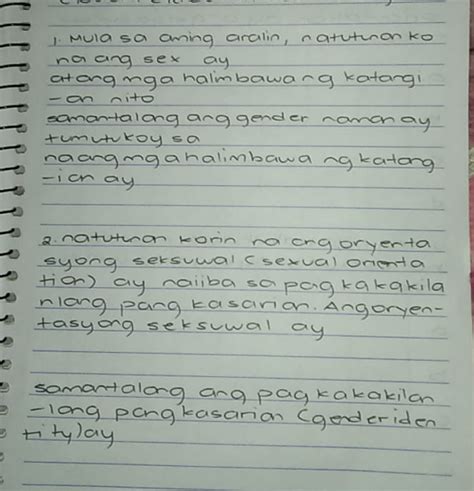 1. Mula sa aming aralin, natutunan ko
na ang sex ay
at ang mga halimbawa ng katangi
-an nito
samantalang ang gender naman ay
tumutukoy sa
na ang mga halimbawa ng katang
-ian ay
2. natutunan korin na ang oryenta
syong seksuwal (sexual orienta
tion) ay naiiba sa pagkakakila
nlang pangkasarian. Ang oryen-
tasyong seksuwal ay
samantalang ang pagkakakilan
-lang pangkasarian (gender iden
tity) ay